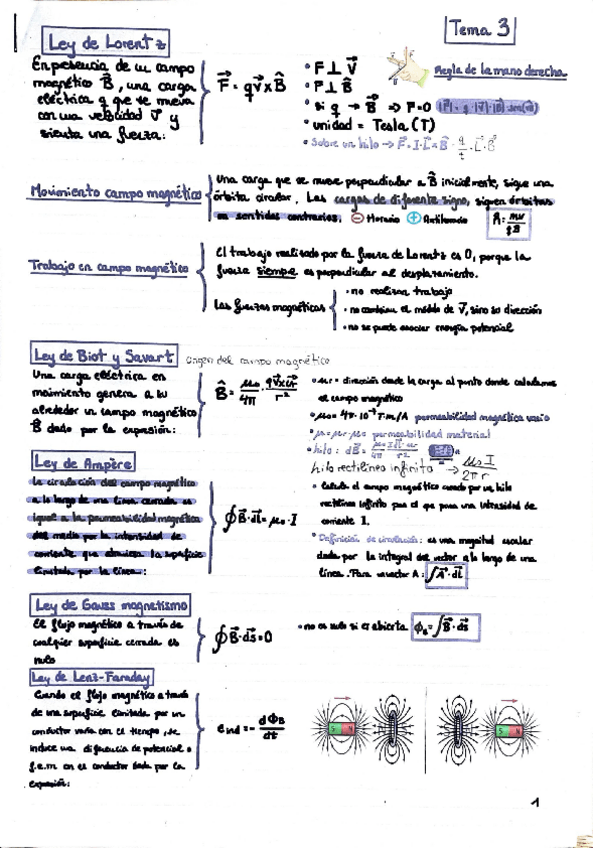 Tema 3
Ley de Lorentz
En presencia de un campo
magnético B⃗, una carga
eléctrica q que se mueva
con una velocidad v⃗ y
sienta una fuerza:
F⃗ = qv⃗ x B⃗
• F ⊥ V⃗
• F ⊥ B⃗
• si q → B⃗ ⇒ F=0 |F⃗| = q·|v⃗|·|B⃗|
• unidad = Tesla (T)
• Sobre un hilo → F⃗ = I·L⃗ x B⃗
Regla de la mano derecha
Movimiento campo magnético
Una carga que se mueve perpendicular a B⃗ inicialmente, sigue una
órbita circular. Las cargas de diferente signo, siguen órbitas
en sentidos contrarios. ⊖ Horario ⊕ Antihorario R = mv/qB
Trabajo en campo magnético
El trabajo realizado por la fuerza de Lorentz es 0, porque la
fuerza siempre es perpendicular al desplazamiento.
Las fuerzas magnéticas
• no realizan trabajo
• no cambian el módulo de v⃗, sino su dirección
• no se puede asociar energía potencial
Ley de Biot y Savart origen del campo magnético
Una carga eléctrica en
movimiento genera a su
alrededor un campo magnético
B⃗ dado por la expresión:
B⃗ = μ₀/4π · qv⃗xu⃗r/r²
• ur = dirección desde la carga al punto donde calculamos
el campo magnético
• μ₀ = 4π·10⁻⁷ T·m/A permeabilidad magnética vacío
• μ = μr·μ₀ permeabilidad material
• hilo: dB⃗ =
hilo rectilíneo infinito → μ₀I/2πr
Ley de Ampère
La circulación del campo magnético
a lo largo de una línea cerrada es
igual a la permeabilidad magnética
del medio por la intensidad de
corriente que atraviesa la superficie
limitada por la línea:
∮B⃗·dl⃗ = μ₀·I
• Calcula el campo magnético creado por un hilo
rectilíneo infinito por el que pasa una intensidad de
corriente I.
• Definición de circulación: es una magnitud escalar
dada por la integral del vector a lo largo de una
línea. Para un vector A: ∫A⃗·dl⃗
Ley de Gauss magnetismo
El flujo magnético a través de
cualquier superficie cerrada es
nulo
∮B⃗·ds⃗ = 0
• no es nulo si es abierta ϕB = ∫B⃗·ds⃗
Ley de Lenz-Faraday
Cuando el flujo magnético a través
de una superficie limitada por un
conductor varía con el tiempo, se
induce una diferencia de potencial o
f.e.m en el conductor dada por la
expresión:
eind = - dΦB/dt
S N
S N
1